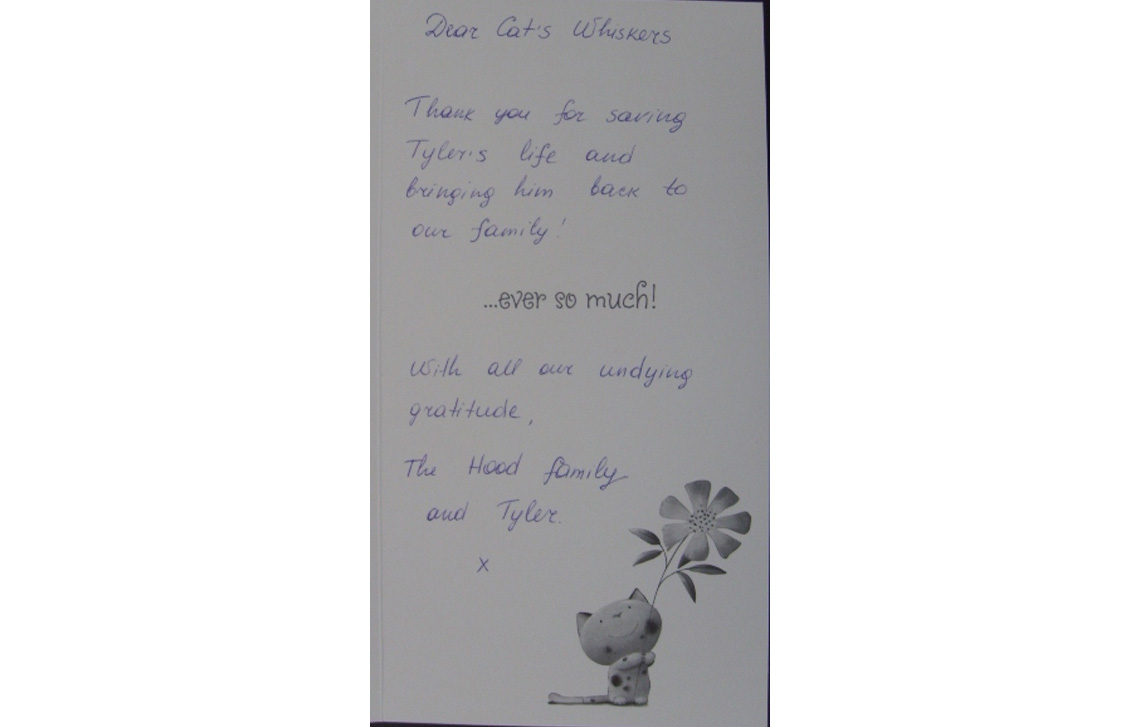 Dear Cat's Whiskers
Thank you for saving
Tyler's life and
bringing him back to
our family!
...ever so much!
With all our undying
gratitude,
The Hood family
and Tyler.
x